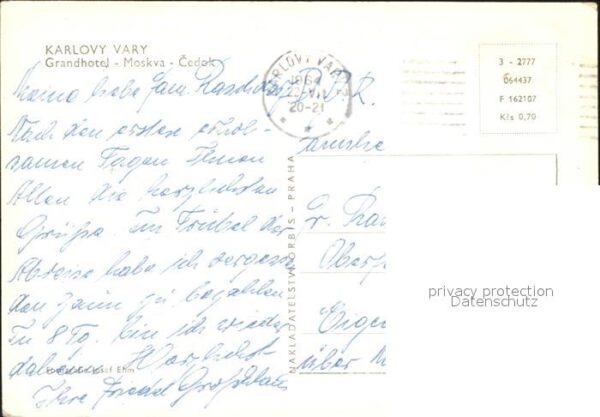 KARLOVY VARY
Grandhotel - Moskva - Čedok
KARLOVY VARY 2
1964
20-21
3 - 2777
064437
F 162107
Kčs 0,70
Meine liebe Fam.
Nach den ersten erhol-
samen Tagen Ihnen
Allen die herzlichsten
Grüße. Im Trubel der
Abreise habe ich vergessen
den Zaun zu bezahlen
In 8 Tg. bin ich wieder
daheim. Herzlichst
Ihre Friedel
NAKLADATELSTVÍ ORBIS - PRAHA
Josef Ehm
über
privacy protection
Datenschutz